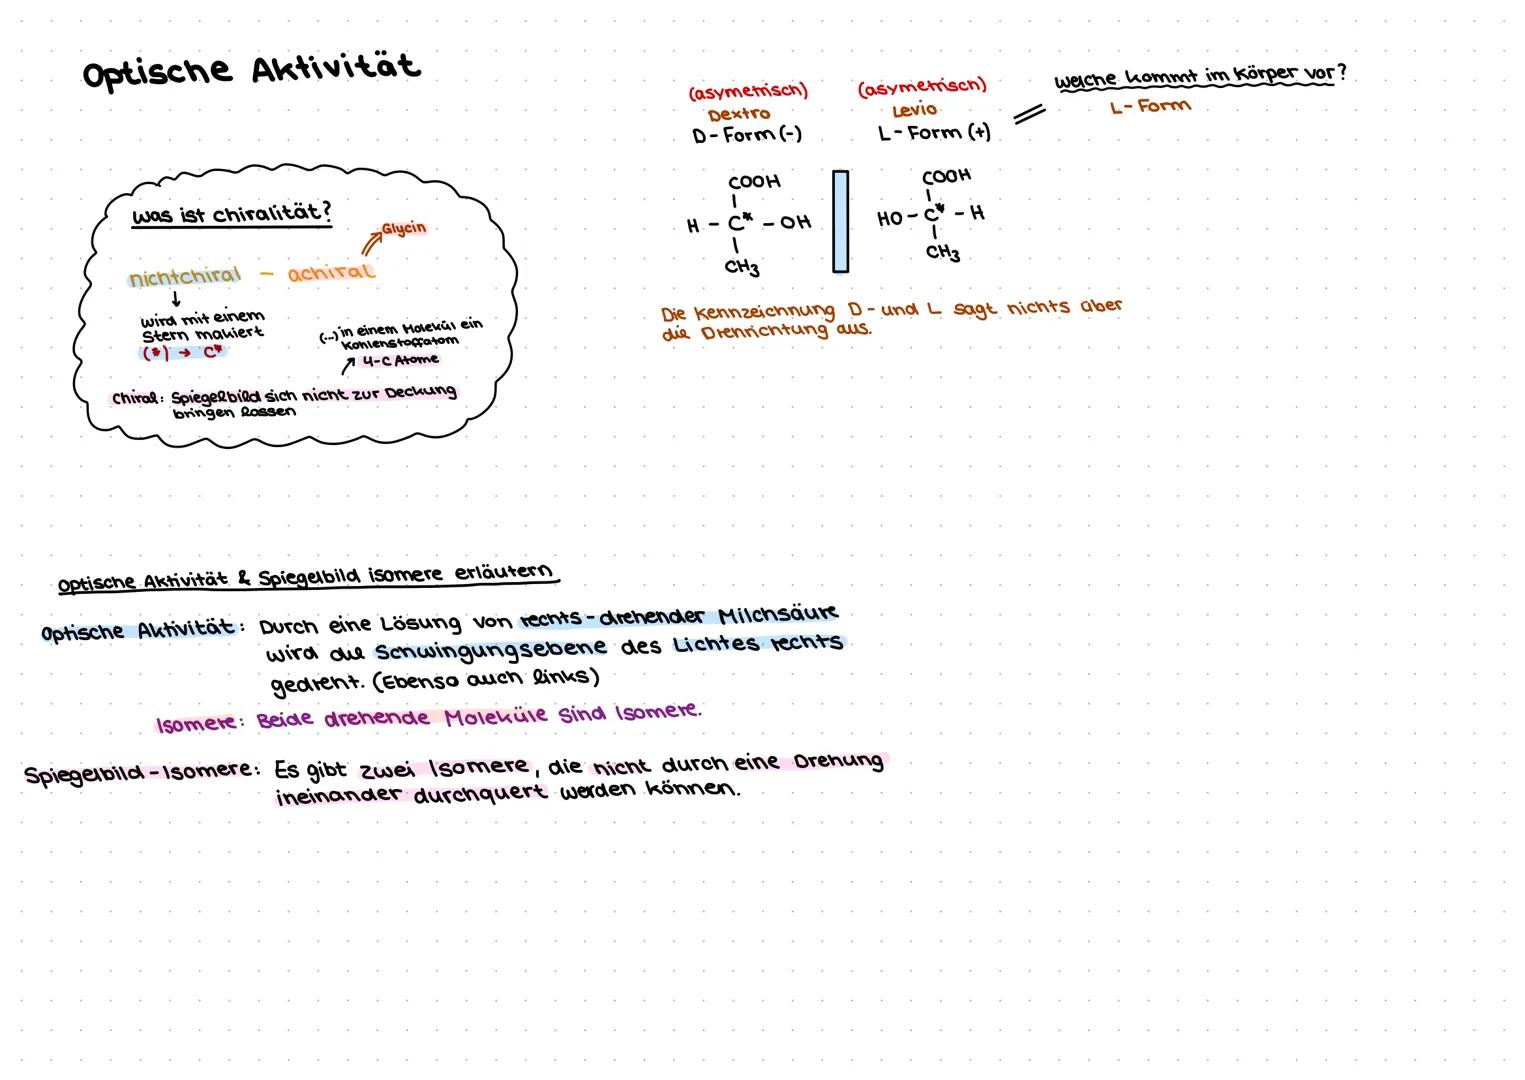 Optische Aktivität
was ist chiralität?
Glycin
nichtchiral - achiral
↓
wird mit einem
Stern makiert
(*) → C*
(...) in einem Molekül ein
Kohlenstoffatom
4-C Atome
Chiral: Spiegelbild sich nicht zur Deckung
bringen lassen
(asymetrisch)
Dextro
D - Form (-)
COOH
H - C* - OH
CH3
(asymetrisch)
Levio
L - Form (+)
COOH
HO - C* - H
CH3
welche kommt im Körper vor?
L - Form
Die Kennzeichnung D - und L sagt nichts über
die Drehrichtung aus.
optische Aktivität & Spiegelbild isomere erläutern
Optische Aktivität: Durch eine Lösung von rechts - drehender Milchsäure
wird die Schwingungsebene des Lichtes rechts
gedreht. (Ebenso auch links)
Isomere: Beide drehende Moleküle sind Isomere.
Spiegelbild - Isomere: Es gibt zwei Isomere, die nicht durch eine Drehung
ineinander durchquert werden können.